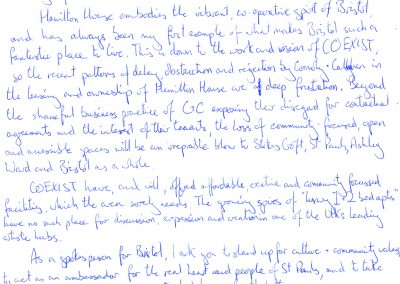 Hamilton House embodies the vibrant, co-operative spirit of Bristol,
and has always been my first example of what makes Bristol such a
fantastic place to live. This is down to the work and vision of COEXIST,
so the recent patterns of delay, obstruction and rejection by Connolly + Callaghan in
the leasing and ownership of Hamilton House are of deep frustration. Beyond
the shameful business practice of C+C exposing their disregard for contractual
agreements and the interest of their tenants, the loss of community-focused, open
and accessible spaces will be an irreparable blow to Stokes Croft, St Pauls, Ashley
Ward and Bristol as a whole.
COEXIST have, and will, offered affordable creative and community focussed
facilities, which the area sorely needs. The growing spires of "luxury 1+2 bed apts"
have no such place for discussion, expression and creation in one of the UK's leading
artistic hubs.
As a spokesperson for Bristol, I ask you to stand up for culture + community values,
to act as an ambassador for the real heart and people of St Pauls, and to take